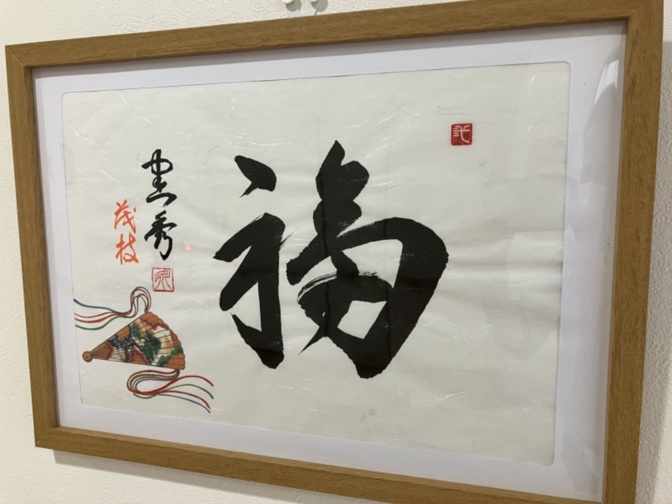 福
恵秀
茂枝